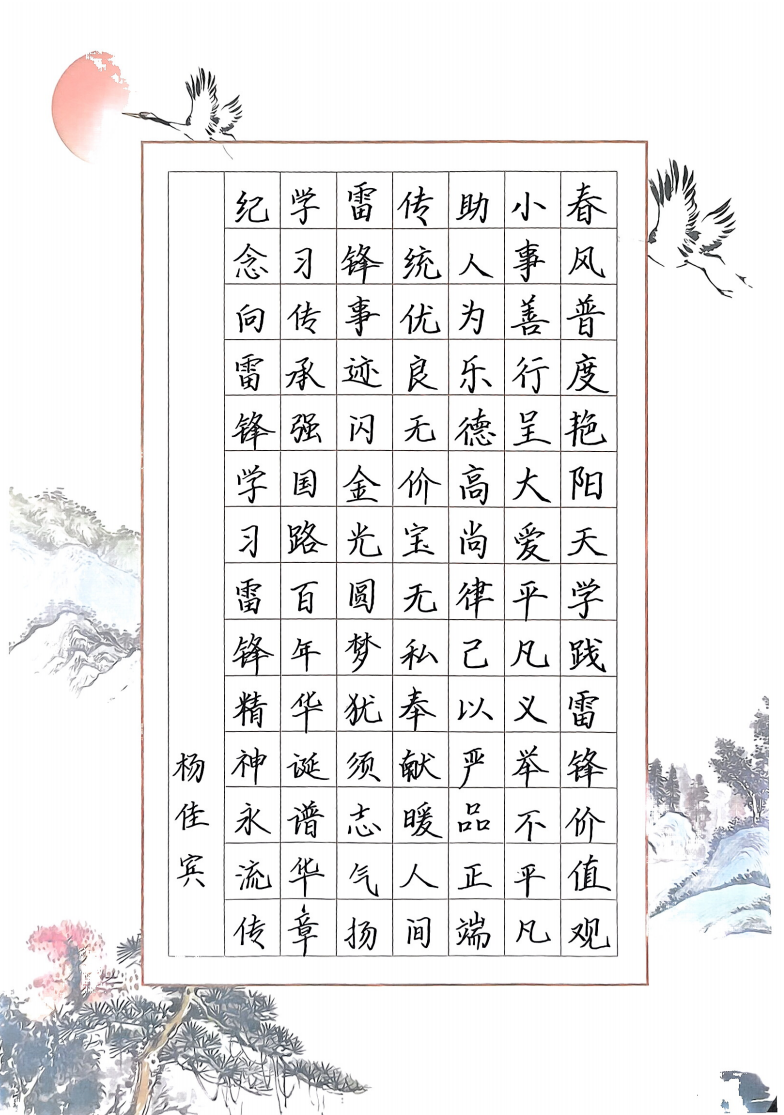 春风普度艳阳天学践雷锋价值观
小事善行呈大爱平凡义举不平凡
助人为乐德高尚律己以严品正端
传统优良无价宝无私奉献暖人间
雷锋事迹闪金光圆梦犹须志气扬
学习传承强国路百年华诞谱华章
纪念向雷锋学习雷锋精神永流传
杨佳宾